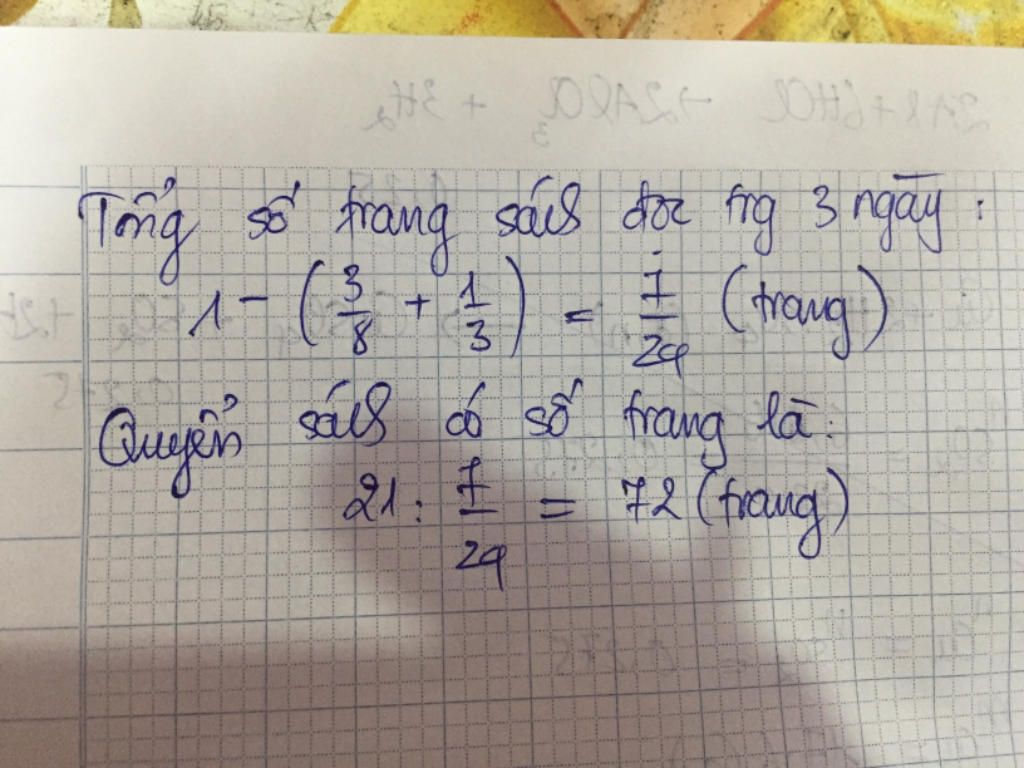 Tổng số trang sách đọc trg 3 ngày :
1 - (3/8 + 1/3) = 7/24 (trang)
Quyển sách có số trang là:
21 : 7/24 = 72 (trang)